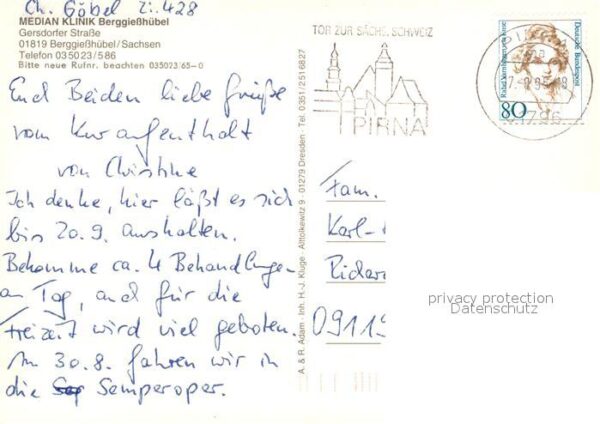 Ch. Göbel Zi. 428
MEDIAN KLINIK Berggießhübel
Gersdorfer Straße
01819 Berggießhübel/Sachsen
Telefon 035023/586
Bitte neue Rufnr. beachten 035023/65-0
Euch Beiden liebe Grüße
vom Kuraufenthalt
von Christine
Ich denke, hier läßt es sich
bis 20.9. aushalten.
Bekomme ca. 4 Behandlungen
am Tag, und für die
Freizeit wird viel geboten.
Am 30.8. fahren wir in
die Semperoper.
A. & R. Adam - Inh. H.-J. Kluge - Alttolkewitz 9 - 01279 Dresden - Tel. 0351/2516827
TOR ZUR SÄCHS. SCHWEIZ
PIRNA
PIRNA 1
01796
Deutsche Bundespost
Rahel Varnhagen von Ense
80
Fam.
Karl-
Richard
09119
privacy protection
Datenschutz